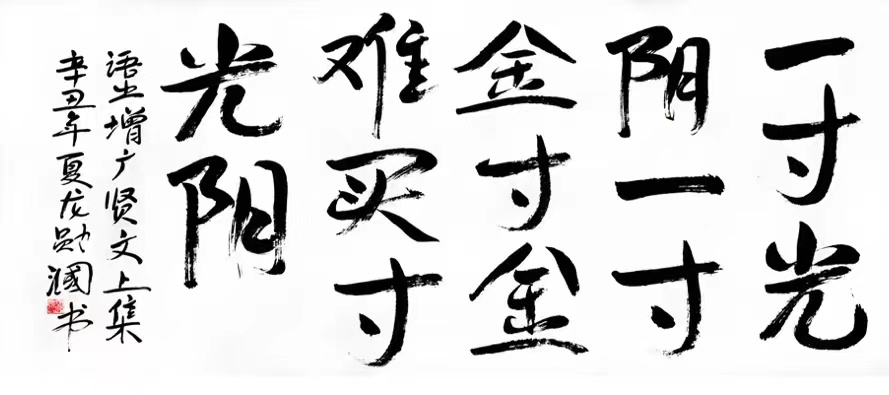 一寸光
阴一寸
金寸金
难买寸
光阴
语出增广贤文上集
辛丑年夏龙勋国书